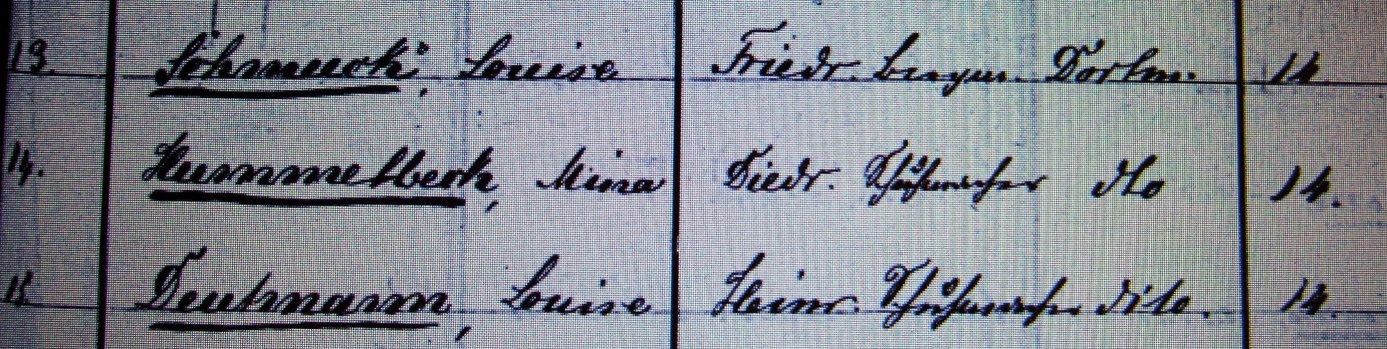 13. Schmuck, Louise Friedr. Bergm. Dortm. 14
14. Hummelbeck, Mina Diedr. Schuhmacher dito 14.
15 Deutmann, Louise Heinr. Schuhmacher dito. 14.